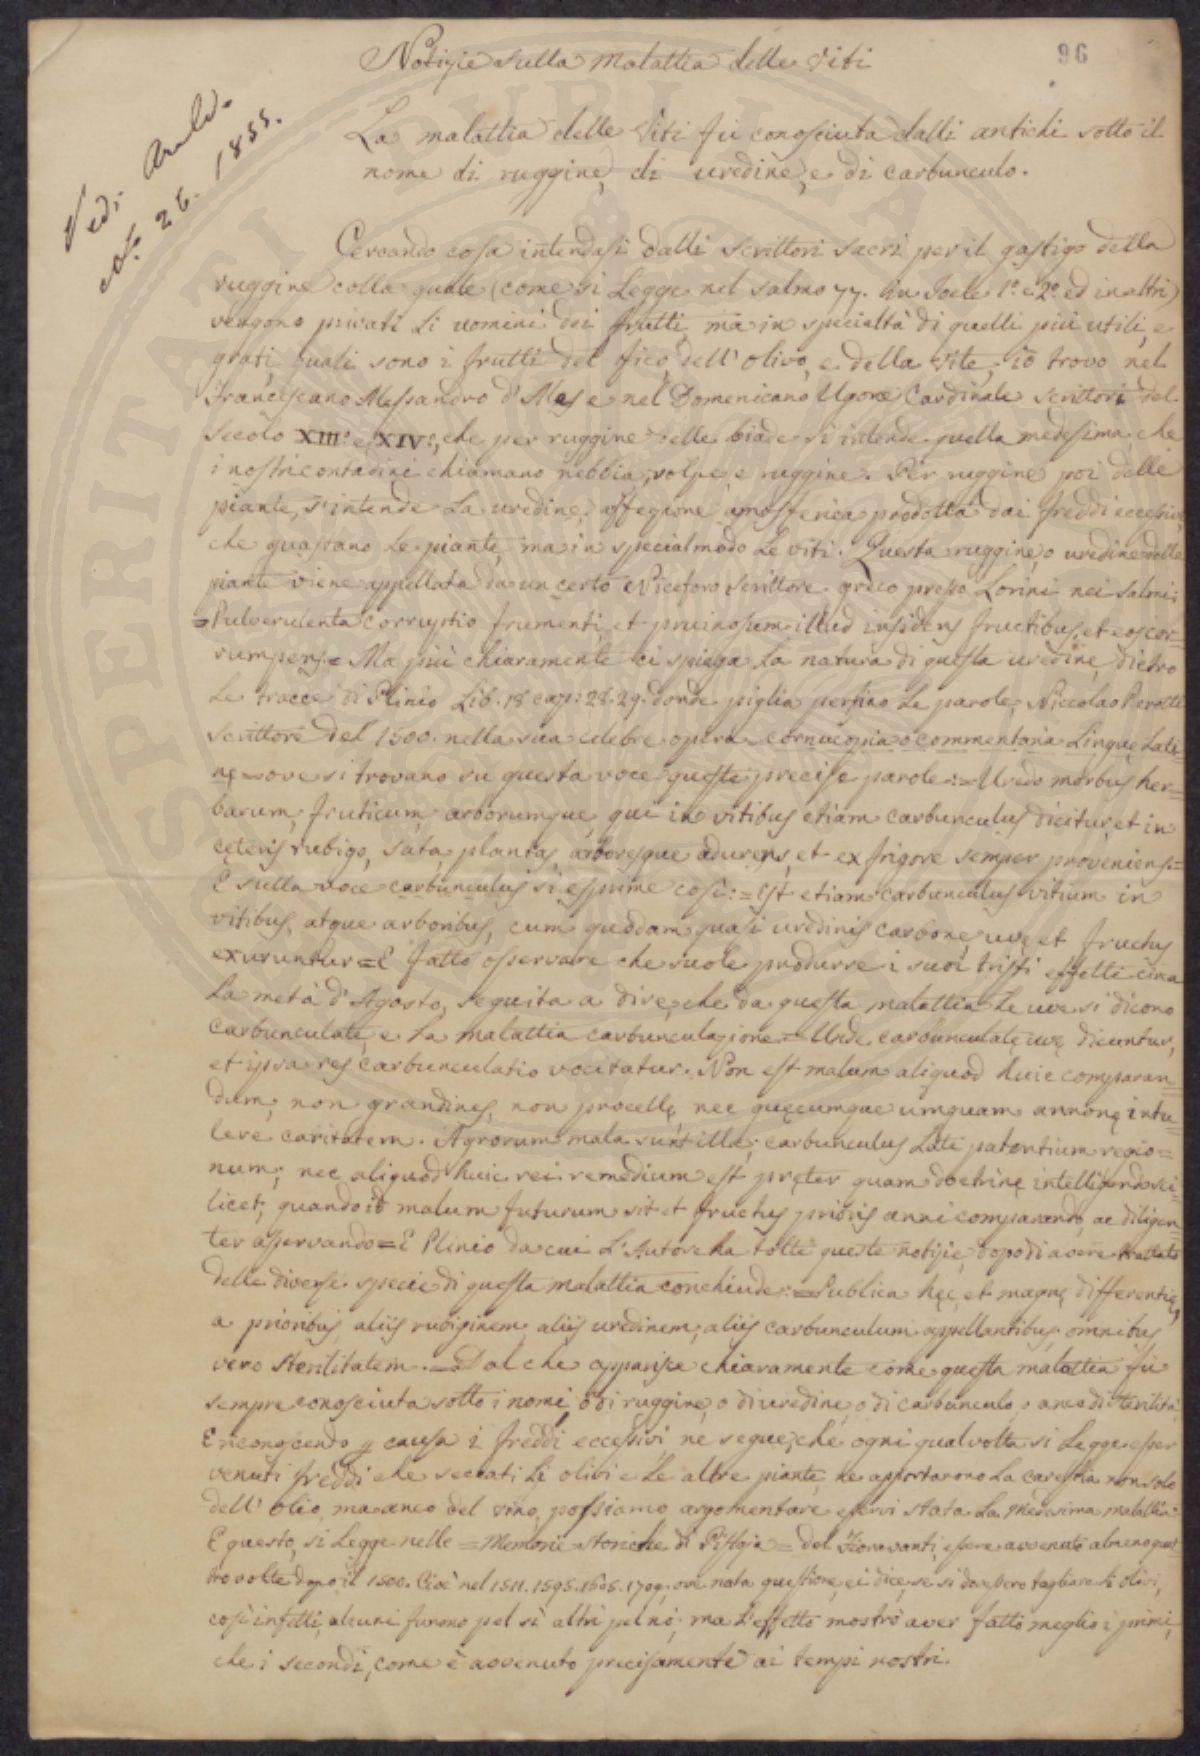 96
Notizie sulla malattia delle Viti
Vedi Arald.
No. 26. 1855.
La malattia delle Viti fù conosciuta dalli antichi sotto il
nome di ruggine, di uredine, e di carbunculo.
Cercando cosa intendasi dalli scrittori sacri per il gastigo della
ruggine colla quale (come si Legge nel salmo 77. in Joele 1.º e 2.º ed in altri)
vengono privati li uomini dei frutti, ma in specialtà di quelli più utili, e
grati, quali sono i frutti del fico, dell' olivo, e della vite, io trovo nel
Francescano Alessandro d' Ales e nel Domenicano Ugone Cardinale scrittori del
secolo XIII.º e XIV.º, che per ruggine delle biade si intende quella medesima che
i nostri contadini chiamano nebbia, volpe, e ruggine. Per ruggine poi delle
piante, s'intende La uredine, affezione atmosferica prodotta dai freddi eccessivi
che guastano Le piante, ma in special modo Le viti. Questa ruggine, o uredine delle
piante viene appellata da un certo Niceforo scrittore greco presso Lorini nei salmi:
= Pulverulenta corruptio frumenti, et pruinosum illud insidens fructibus, et eos cor-
rumpens = Ma più chiaramente ci spiega La natura di questa uredine, dietro
Le tracce di Plinio Lib. 18 cap: 28. 29. donde piglia persino Le parole, Niccolao Perotti
scrittore del 1500. nella sua celebre opera = cornucopia o commentaria Linguę Lati-
nę = ove si trovano su questa voce queste precise parole := Uredo morbus her-
barum, fruticum, arborumque, qui in vitibus etiam carbunculus dicitur, et in
cęteris rubigo, sata, plantas, arboresque adurens, et ex frigore semper proveniens =
E sulla voce carbunculus si esprime così: = Est etiam carbunculus vitium in
vitibus, atque arboribus, cum quodam quasi uredinis carbone uvę et fructus
exuruntur = E' fatto osservare che suole produrre i suoi tristi effetti circa
La metà d' Agosto, seguita a dire, che da questa malattia Le uve si dicono
carbunculate, e La malattia carbunculazione = Unde carbunculatę uvę dicuntur,
et ipsa res carbunculatio vocitatur. Non est malum aliquod huic comparan-
dum, non grandines, non procellę nec quęcumque umquam annonę intu-
lere caritatem. Agrorum mala sunt illa; carbunculus Late patentium regio=
num; nec aliquod huic rei remedium est pręter quam doctrinę intelligendo sci-
licet, quando id malum futurum sit et fructus prioris anni comparando, ac diligen-
ter asservando = E Plinio da cui L' Autore ha tolte queste notizie, dopo di avere trattato
delle diverse specie di questa malattia conchiude: = Publica hęc, et magnę differentię,
a prioribus, aliis rubiginem, aliis uredinem, aliis carbunculum appellantibus, omnibus
vero sterilitatem. = Dal che apparisce chiaramente come questa malattia fù
sempre conosciuta sotto i nomi, o di ruggine, o di uredine, o di carbunculo, o anco di sterilità.
E riconoscendo p causa i freddi eccessivi, ne segue, che ogni qualvolta si Legge esser
venuti freddi che seccati Li olivi e Le altre piante, ne apportarono La carestia non solo
dell' olio, ma anco del vino, possiamo argomentare esservi stata La medesima malattia.
E questo, si Legge nelle = Memorie storiche di Pistoja = del Fioravanti, essere avvenuto almeno quat-
tro volte dopo il 1500. Cioè nel 1511. 1595. 1605. 1709. ove nata questione, ei dice, se si dovessero tagliare Li olivi,
così infetti, alcuni furono pel sì altri pel nò; ma L'effetto mostrò aver fatto meglio i primi,
che i secondi, come è avvenuto precisamente ai tempi nostri.